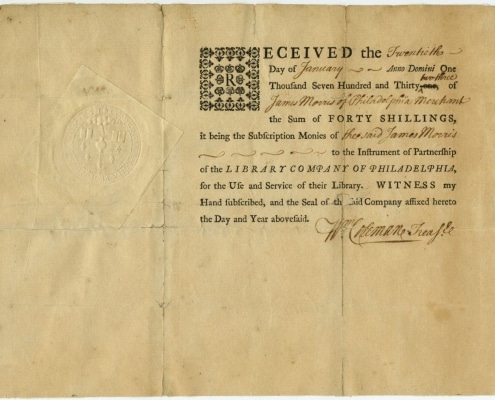 RECEIVED the Twentieth
Day of January Anno Domini One
two three
Thousand Seven Hundred and Thirty, one, of
James Morris of Philadelphia Merchant
the Sum of FORTY SHILLINGS,
it being the Subscription Monies of the said James Morris
to the Instrument of Partnership
of the LIBRARY COMPANY OF PHILADELPHIA,
for the Use and Service of their Library. WITNESS my
Hand subscribed, and the Seal of the said Company affixed hereto
to the Day and Year abovesaid.
Wm Coleman Treasr